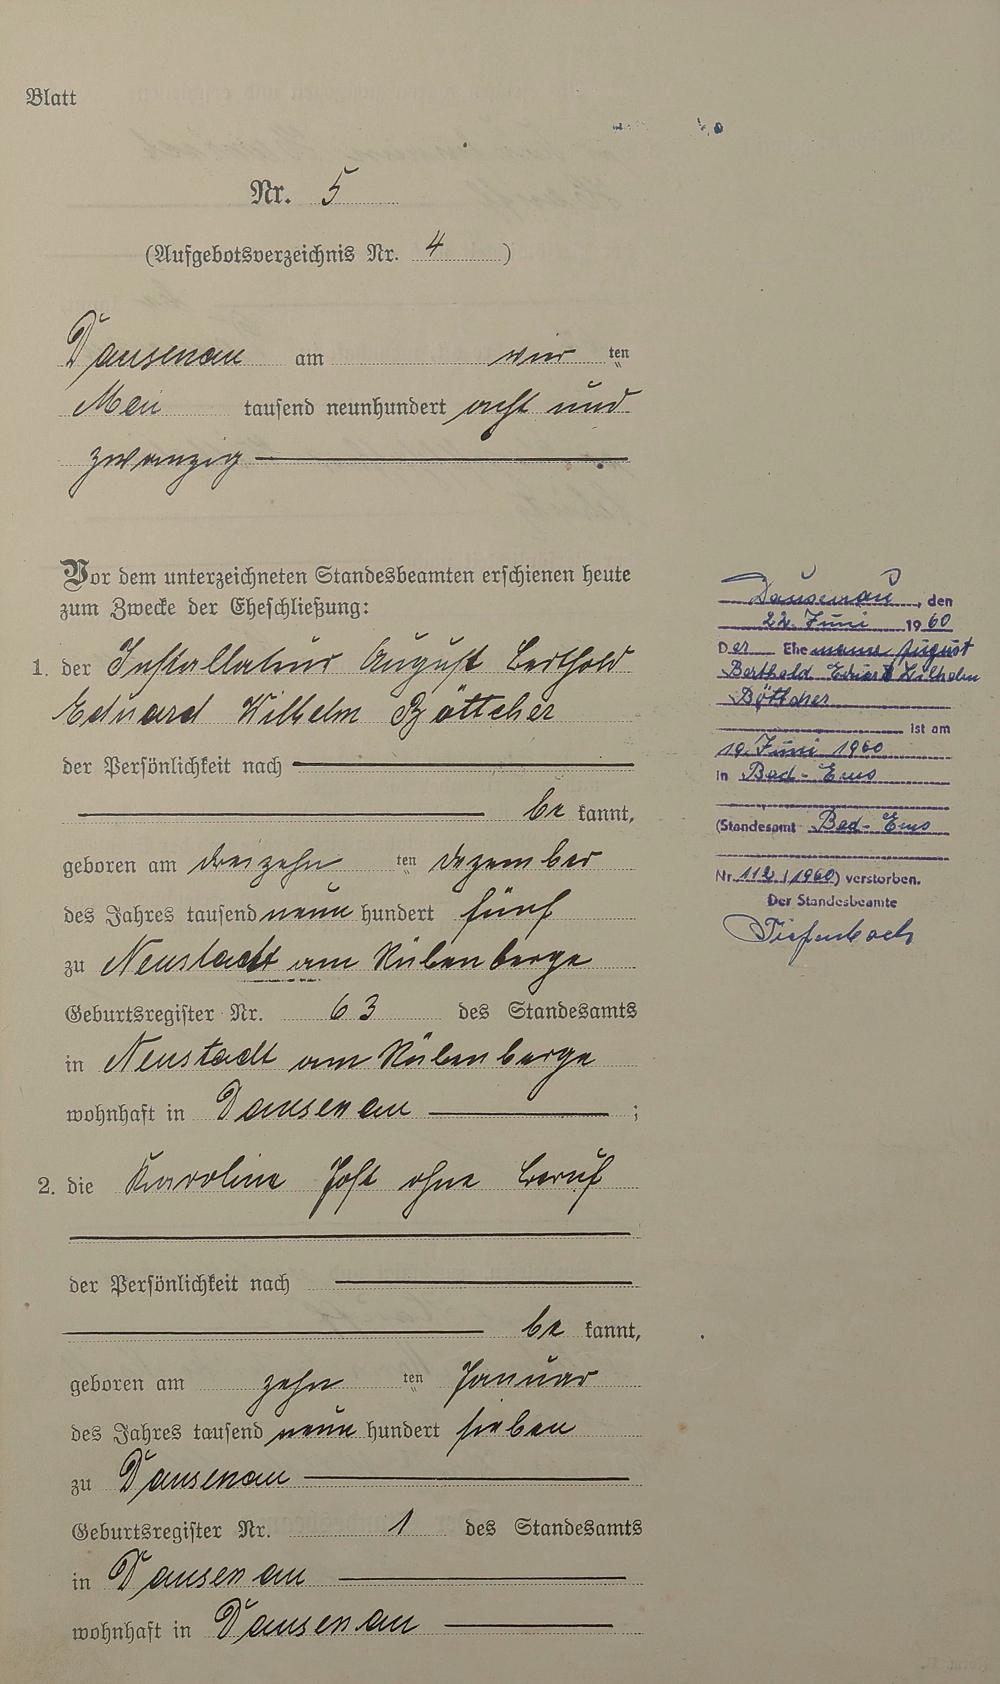 Blatt
Nr. 5
(Aufgebotsverzeichnis Nr. 4 )
Dausenau am vier ten
Mai tausend neunhundert acht und
zwanzig
Vor dem unterzeichneten Standesbeamten erschienen heute
zum Zwecke der Eheschließung:
1. der Installateur August Berthold
Eduard Wilhelm Böttcher
der Persönlichkeit nach
be kannt,
geboren am dreizehn ten Dezember
des Jahres tausend neun hundert fünf
zu Neustadt am Rübenberge
Geburtsregister Nr. 63 des Standesamts
in Neustadt am Rübenberge
wohnhaft in Dausenau ;
2. die Karoline Jost ohne Beruf
der Persönlichkeit nach
be kannt,
geboren am zehn ten Januar
des Jahres tausend neun hundert sieben
zu Dausenau
Geburtsregister Nr. 1 des Standesamts
in Dausenau
wohnhaft in Dausenau
Dausenau, den
22. Juni 1960
Der Ehemann August
Berthold Eduard Wilhelm
Böttcher
ist am
19. Juni 1960
in Bad-Ems
(Standesamt Bad-Ems
Nr. 112/1960) verstorben.
Der Standesbeamte
Tiefenbach